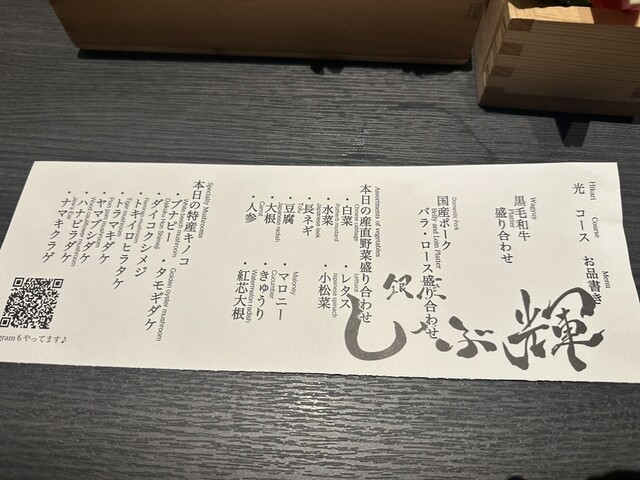 Hikari Course Menu
光 コース お品書き
Wagyuu
黒毛和牛
Platter
盛り合わせ
Domestic Pork
国産ポーク
Belly and Loin Platter
バラ・ロース盛り合わせ
銀座
しゃぶ輝
Assortments of vegetables
本日の産直野菜盛り合わせ
Chinese cabbage Lettuce
・白菜 ・レタス
Potherb mustard Japanese spinach
・水菜 ・小松菜
Japanese leek
・長ネギ
Tofu Maloney
・豆腐 ・マロニー
Japanese radish Cucumber
・大根 ・きゅうり
Carrot Watermelon radish
・人参 ・紅芯大根
Specialty Mushrooms
本日の特産キノコ
White beech mushroom Golden oyster mushroom
・ブナピー ・タモギダケ
・ダイコクシメジ
・トキイロヒラタケ
・トラマキダケ
・ヤマブシダケ
・ハナビラダケ
・ナマキクラゲ
gramもやってます♪